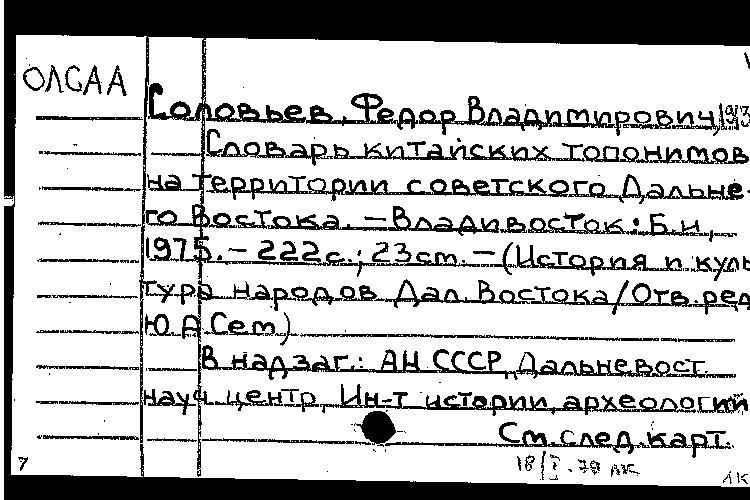 ОЛСАА
Соловьев, Федор Владимирович, 193
Словарь китайских топонимов
на территории советского Дальне-
го Востока. — Владивосток: Б.и.,
1975. — 222 с.; 23 cm. — (История и куль
тура народов Дал. Востока / Отв. ред.
Ю.А. Сем)
В надзаг.: АН СССР, Дальневост.
науч. центр, Ин-т истории, археологии
См. след. карт.
7 18/I.79 ЛК ЛК